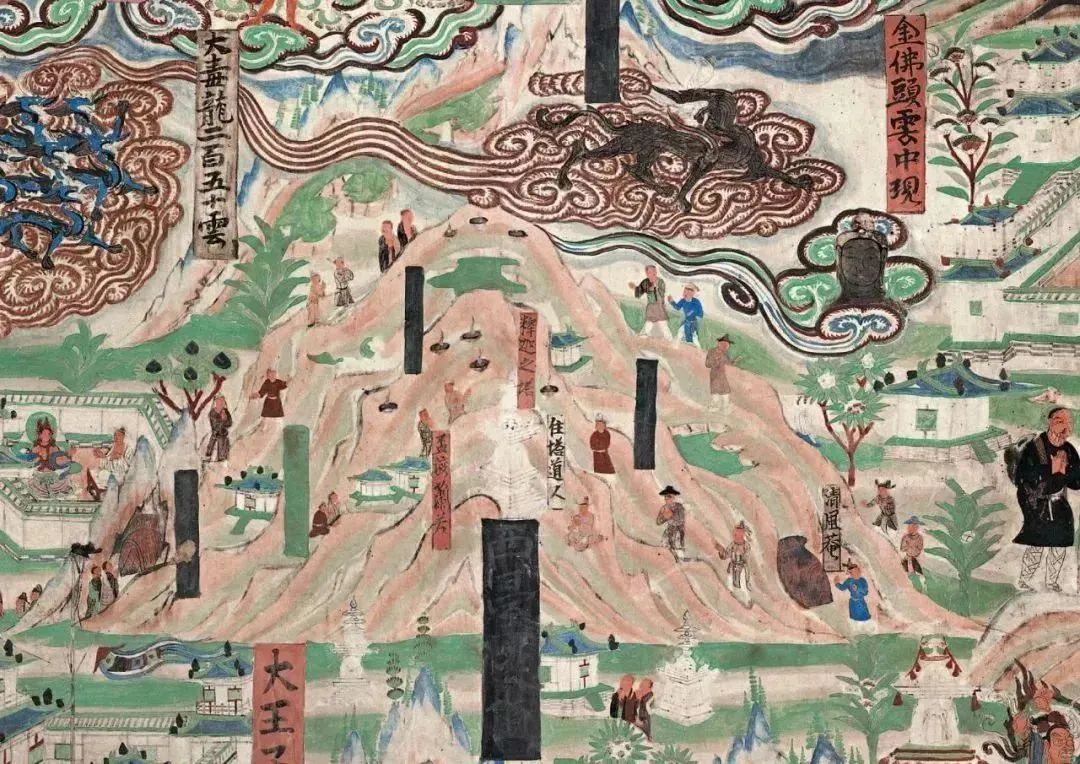 金佛頭雲中現
大毒龍二百五十雲
釋迦之塔
住塔道人
清風菴
大王